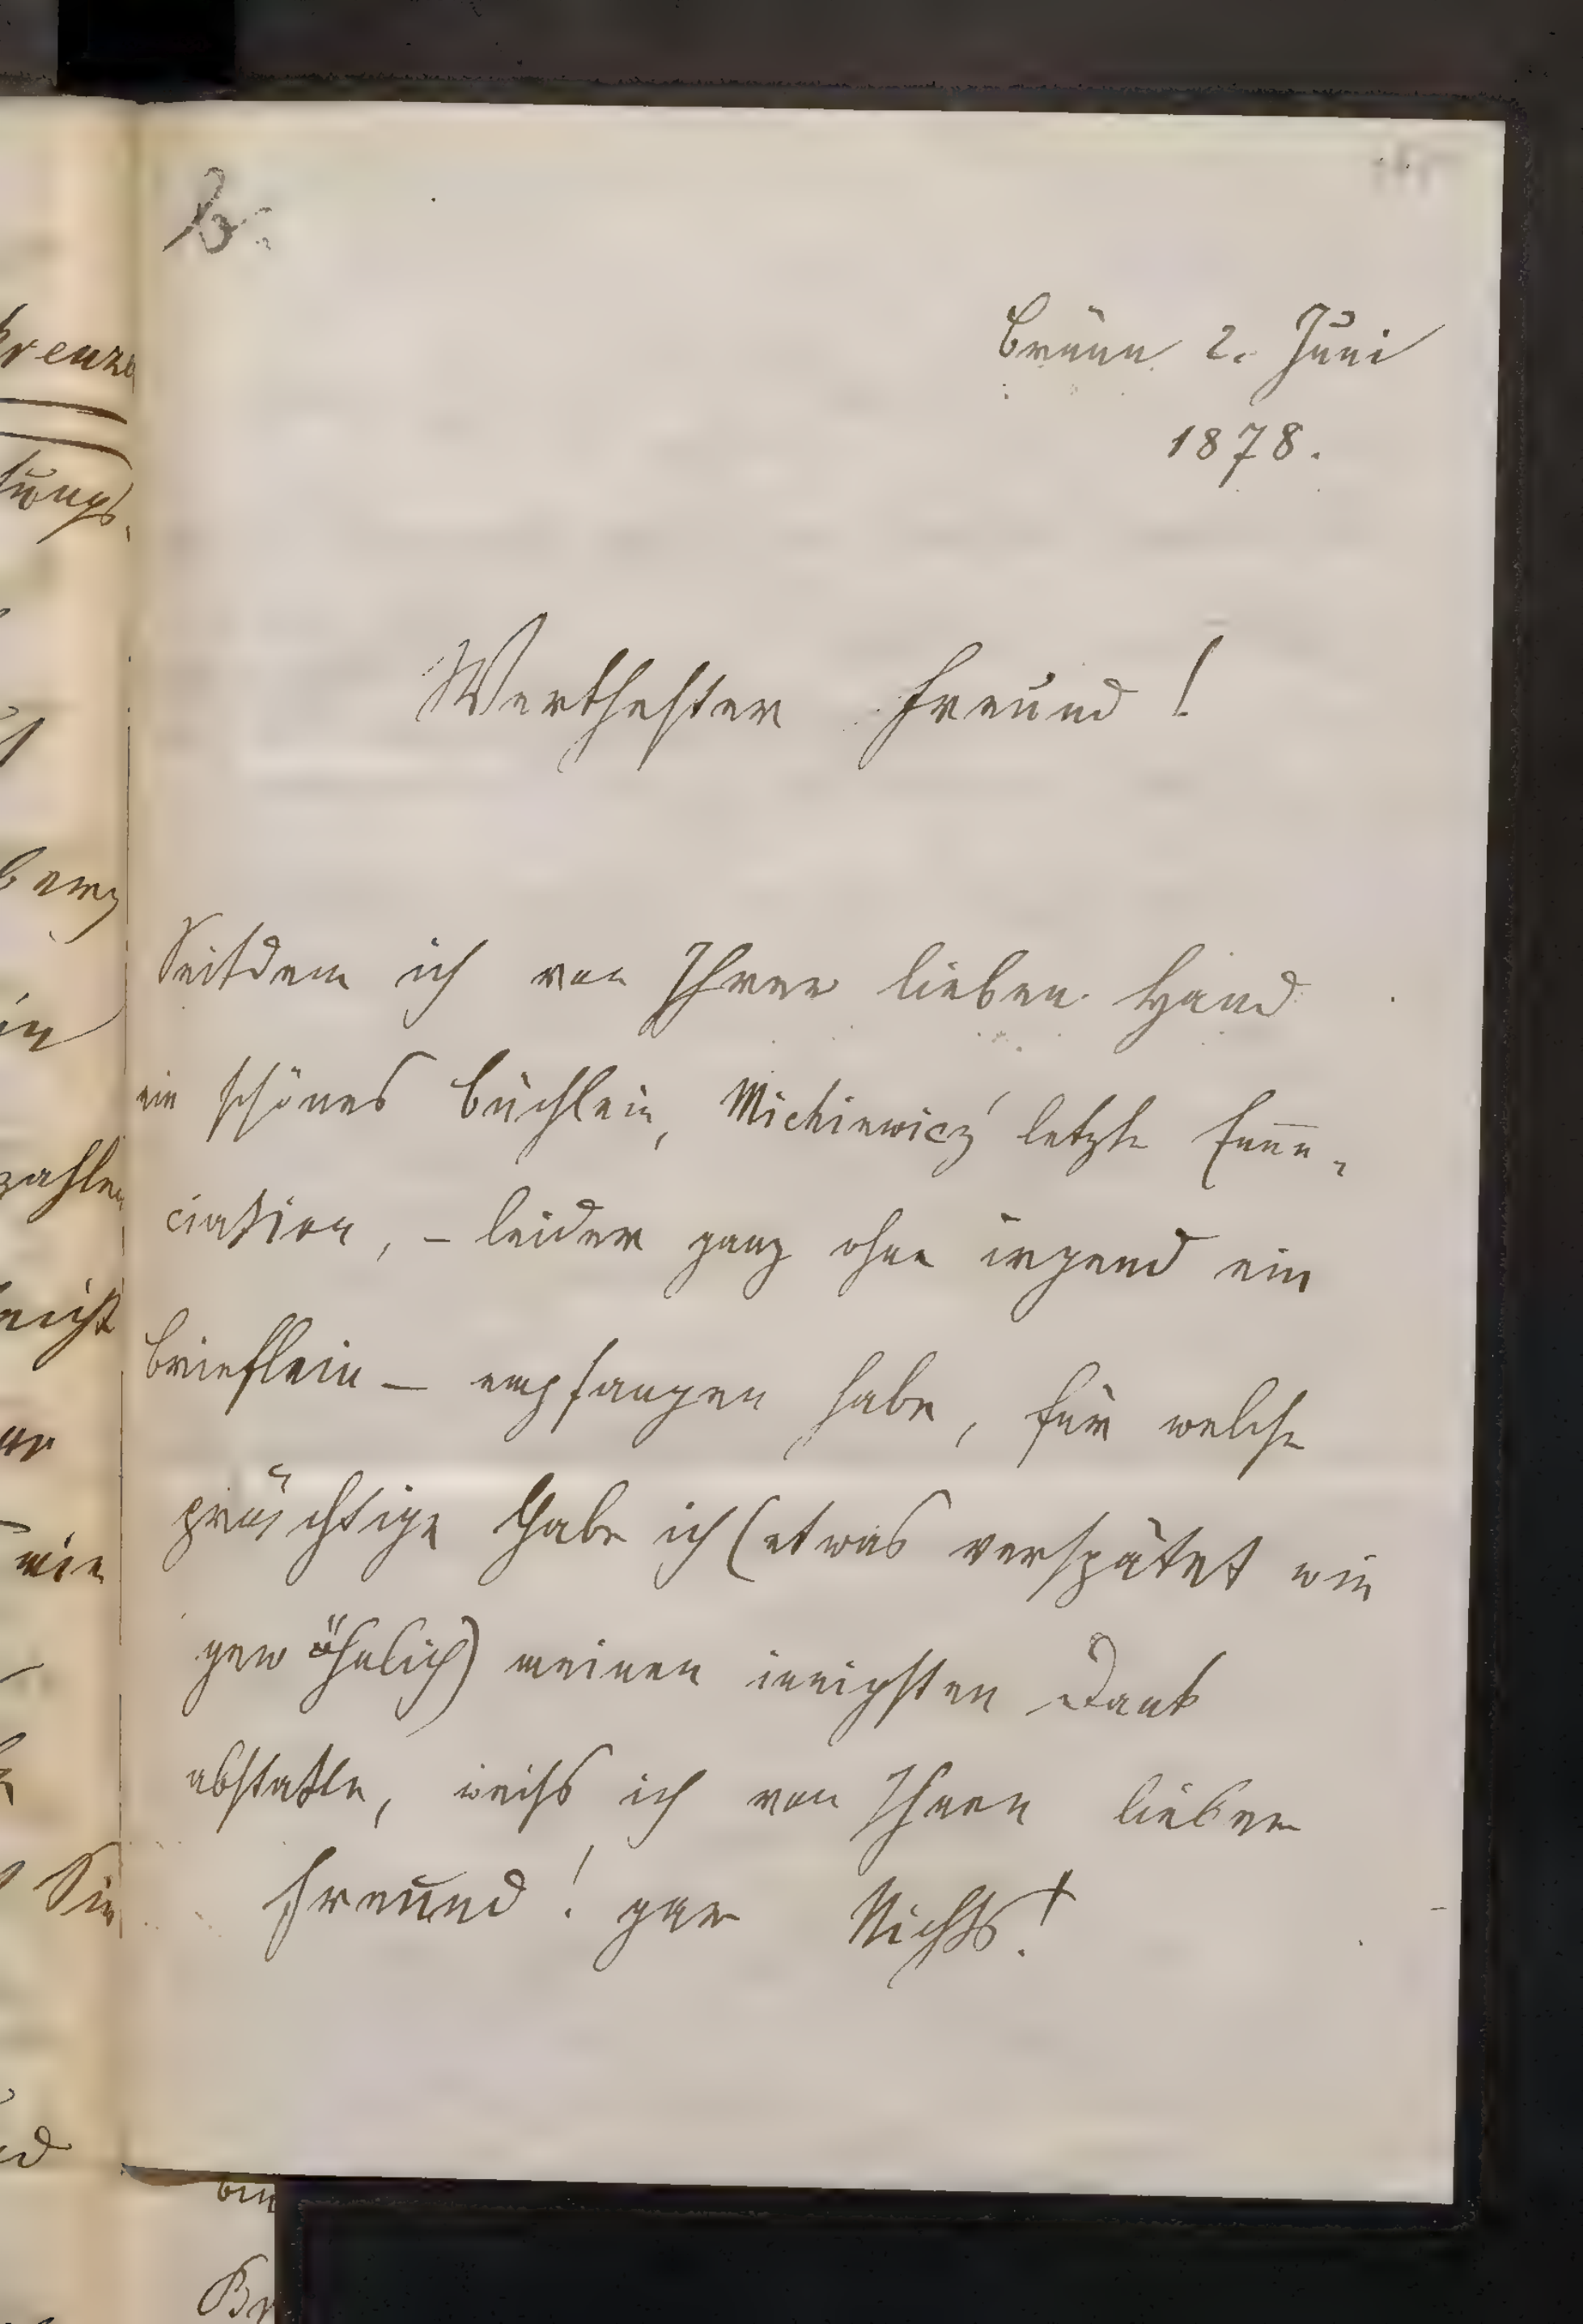 b.
Brünn 2. Juni
1878.
Werthester Freund!
Seitdem ich von Ihrer lieben Hand
ein schönes Büchlein, Mickiewicz' letzte Enun-
ciation, – leider ganz ohne irgend ein
Brieflein – empfangen habe, für welche
prächtige Gabe ich (etwas verspätet wie
gewöhnlich) meinen innigsten Dank
abstatte, weiß ich von Ihnen lieber
Freund! gar Nichts!